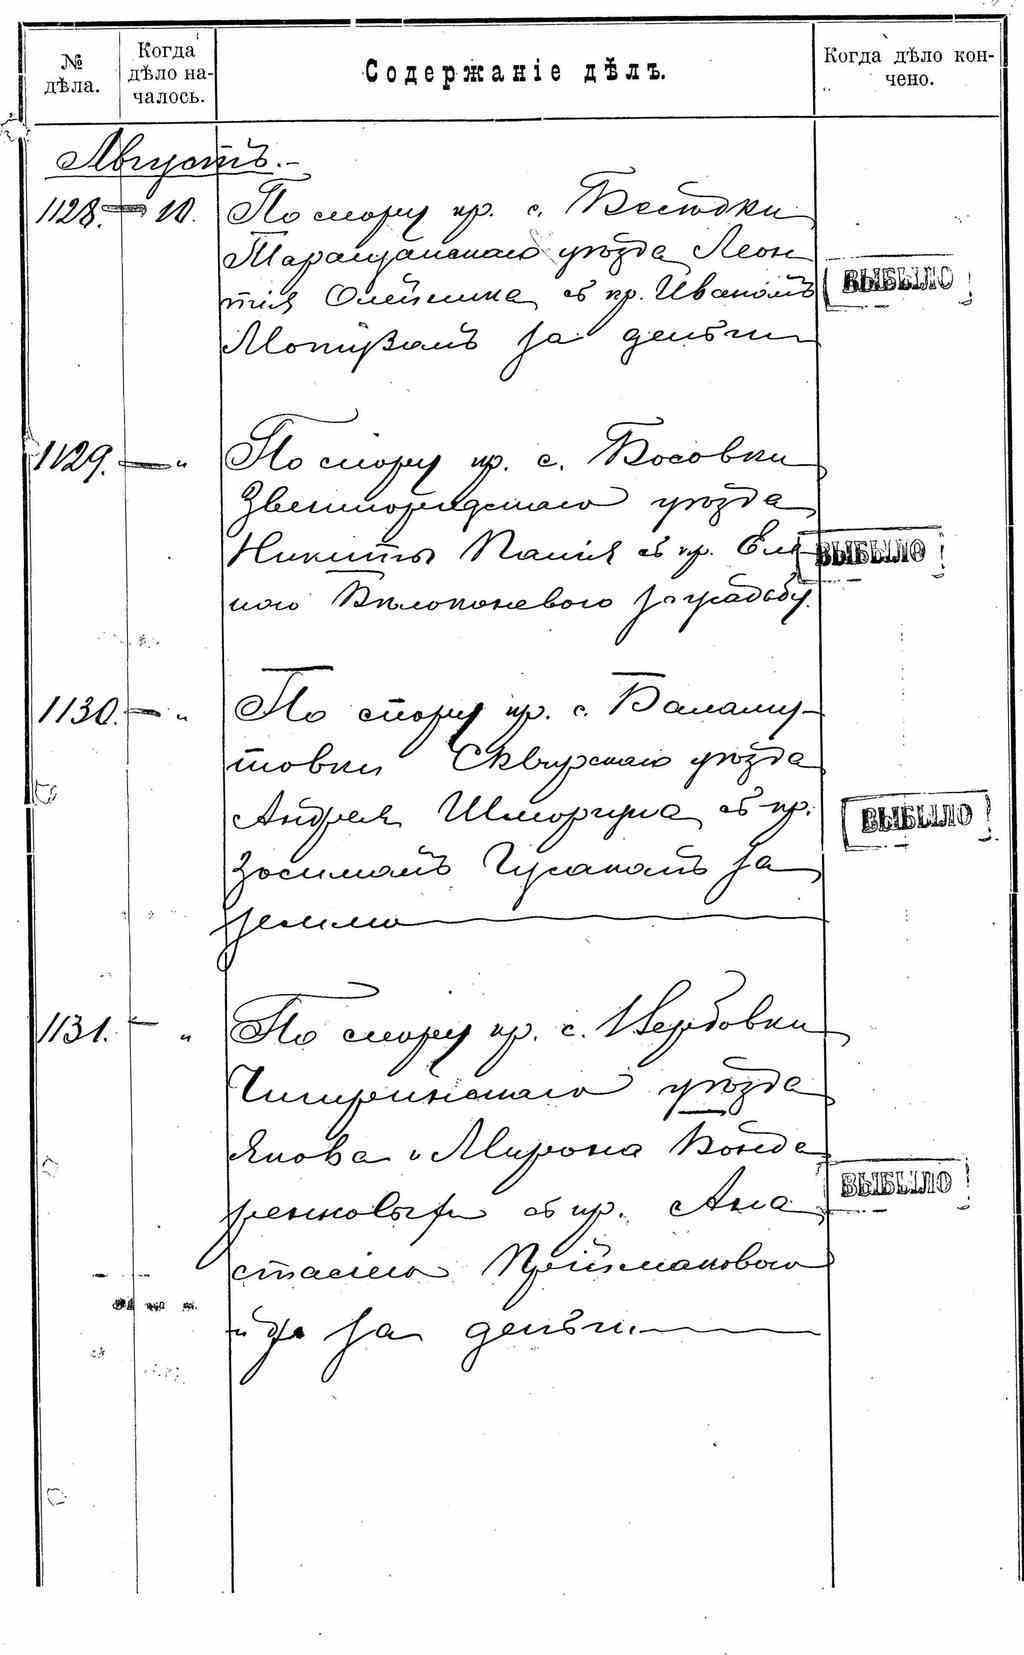 № дѣла.
Когда дѣло началось.
Содержаніе дѣлъ.
Когда дѣло кончено.
Августъ.
1128. — 10. По спору кр. с. Бесѣдки
Таращанскаго уѣзда Леон
тія Олейника съ кр. Иваномъ
за деньги
ВЫБЫЛО
1129. — " По спору кр. с. Босовки
Звенигородскаго уѣзда
Никиты Палія съ кр.
Бѣлоконевого за усадьбу.
ВЫБЫЛО
1130. — " По спору кр. с. Баламу-
товки Сквирскаго уѣзда
Андрея Шморгуна съ кр.
Зосимомъ Гусакомъ за
землю
ВЫБЫЛО
1131. — " По спору кр. с. Вербовки
Чигиринскаго уѣзда
Якова и Мирона Бонда
ренковыхъ съ кр. Ана
стасіею Приймаковою
и др за деньги
ВЫБЫЛО